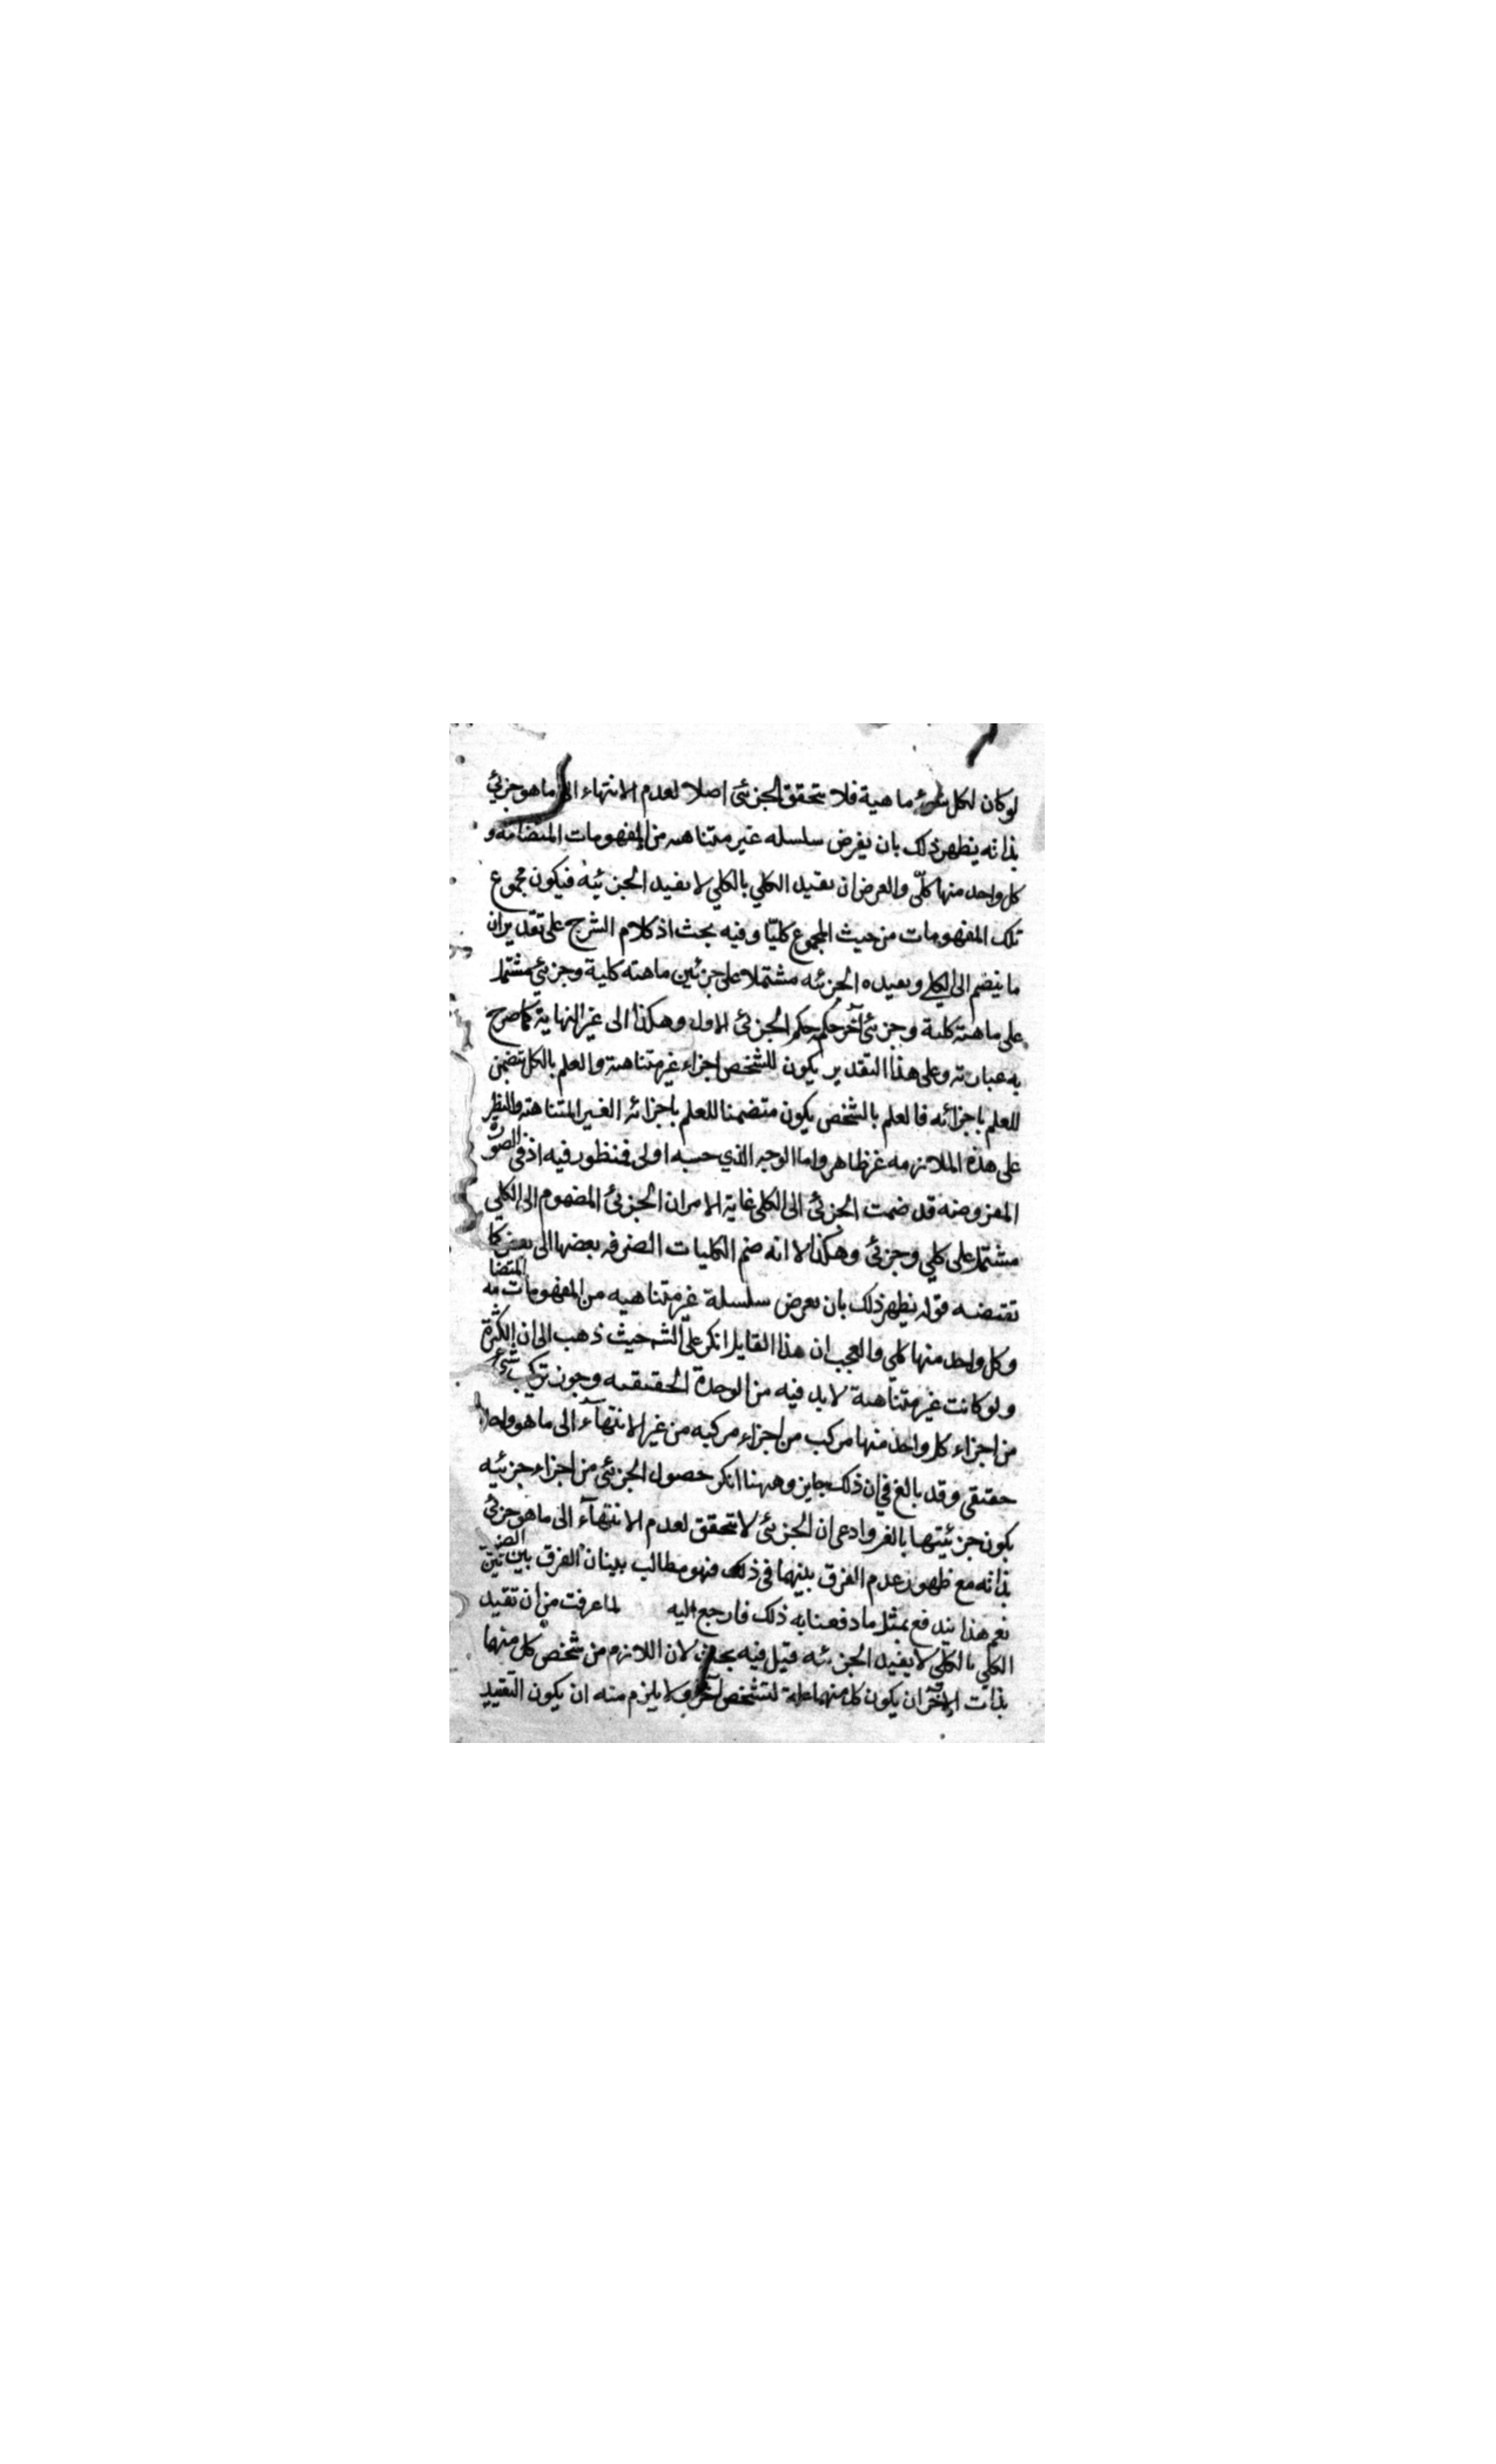 لو كان لكل شئ ماهية فلا يتحقق الجزئى اصلا لعدم الانتهاء الى ما هو جزئي
بذاته يظهر ذلك بان يفرض سلسله غير متناهيه من المفهومات المتضامه و
كل واحد منها كلّى والفرض ان تقييد الكلي بالكلي لا يفيد الجزئيه فيكون مجموع
تلك المفهومات من حيث المجموع كليّا وفيه بحث اذ كلام الشرح على تقدير ان
ما ينضم الى الكلي ويفيده الجزئيه مشتملا على جزئين ماهيته كلية وجزئي مشتمل
على ماهيته كلية وجزئى آخر حكمه حكم الجزئى الاول وهكذا الى غير النهاية كما صرح
به عبارته وعلى هذا التقدير يكون للشخص اجزاء غير متناهية والعلم بالكل يتضمن
للعلم باجزائه فالعلم بالشخص يكون متضمنا للعلم باجزائه الغير المتناهية والنظر
على هذه الملازمه غير ظاهر واما الوجه الذي حسبه اولى فمنظور فيه اذ فى الصورة
المفروضه قد ضمت الجزئى الى الكلى غاية الامر ان الجزئى المضموم الى الكلي
مشتمل على كلي وجزئى وهكذا لا انه ضم الكليات الصرفه بعضها الى بعض كما
تقتضيه قوله يظهر ذلك بان يفرض سلسلة غير متناهيه من المفهومات المتضامه
وكل واحد منها كلي والعجب ان هذا القايل انكر على الشـ حيث ذهب الى ان الكثرة
ولو كانت غير متناهية لا بد فيه من الوحدة الحقيقيه وجوز تركب شئ
من اجزاء كل واحد منها مركب من اجزاء مركبه من غير الانتهآء الى ما هو واحد
حقيقى وقد بالغ في ان ذلك جايز وههنا انكر حصول الجزئي من اجزاء جزئيه
يكون جزئيتها بالغير وادعى ان الجزئى لا يتحقق لعدم الانتهآء الى ما هو جزئي
بذاته مع ظهور عدم الفرق بينهما فى ذلك فهو مطالب ببيان الفرق بين الصورتين
نعم هذا يندفع بمثل ما دفعنا به ذلك فارجع اليه لما عرفت من ان تقييد
الكلي بالكلي لا يفيد الجزئيه قيل فيه بحث لان اللازم من شخص كل منهما
بذات الآخر ان يكون كل منهما علة لتشخص الآخر ولا يلزم منه ان يكون التقييد